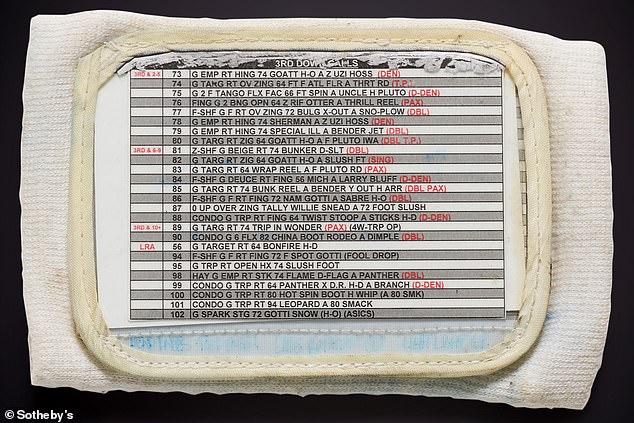 3RD DOWN CALLS
3RD & 2-5 73 G EMP RT HING 74 GOATT H-O A Z UZI HOSS (DEN)
74 G TARG RT OV ZING 64 FT F ATL FLR A THRT RD (T.P.)
75 G 2 F TANGO FLX FAC 66 FT SPIN A UNCLE H PLUTO (D-DEN)
76 FING G 2 BNG OPN 64 Z RIF OTTER A THRILL REEL (PAX)
77 F-SHF G F RT OV ZING 72 BULG X-OUT A SNO-PLOW (DBL)
78 G EMP RT HING 74 SHERMAN A Z UZI HOSS (DEN)
79 G EMP RT HING 74 SPECIAL ILL A BENDER JET (DBL)
80 G TARG RT ZIG 64 GOATT H-O A F PLUTO IWA (DBL T.P.)
3RD & 6-9 81 Z-SHF G BEIGE RT 74 BUNKER D-SLT (DBL)
82 G TARG RT ZIG 64 GOATT H-O A SLUSH FT (SING)
83 G TARG RT 64 WRAP REEL A F PLUTO RD (PAX)
84 F-SHF G DEUCE RT FING 56 MICH A LARRY BLUFF (D-DEN)
85 G TARG RT 74 BUNK REEL A BENDER Y OUT H ARR (DBL PAX)
86 F-SHF G F RT FING 72 NAM GOTTI A SABRE H-O (DBL)
87 0 UP OVER ZING TALLY WILLIE SNEAD A 72 FOOT SLUSH
88 CONDO G TRP RT FING 64 TWIST STOOP A STICKS H-D (D-DEN)
3RD & 10+ 89 G TARG RT 74 TRIP IN WONDER (PAX) (4W-TRP OP)
90 CONDO G 6 FLX 82 CHINA BOOT RODEO A DIMPLE (DBL)
LRA 56 G TARGET RT 64 BONFIRE H-D
94 F-SHF G F RT FING 72 F SPOT GOTTI (FOOL DROP)
95 G TRP RT OPEN HX 74 SLUSH FOOT
98 HAY G EMP RT STK 74 FLAME D-FLAG A PANTHER (DBL)
99 CONDO G TRP RT 64 PANTHER X D.R. H-D A BRANCH (D-DEN)
100 CONDO G TRP RT 80 HOT SPIN BOOT H WHIP (A 80 SMK)
101 CONDO G TRP RT 94 LEOPARD A 80 SMACK
102 G SPARK STG 72 GOTTI SNOW (H-O) (ASICS)
© Sotheby's